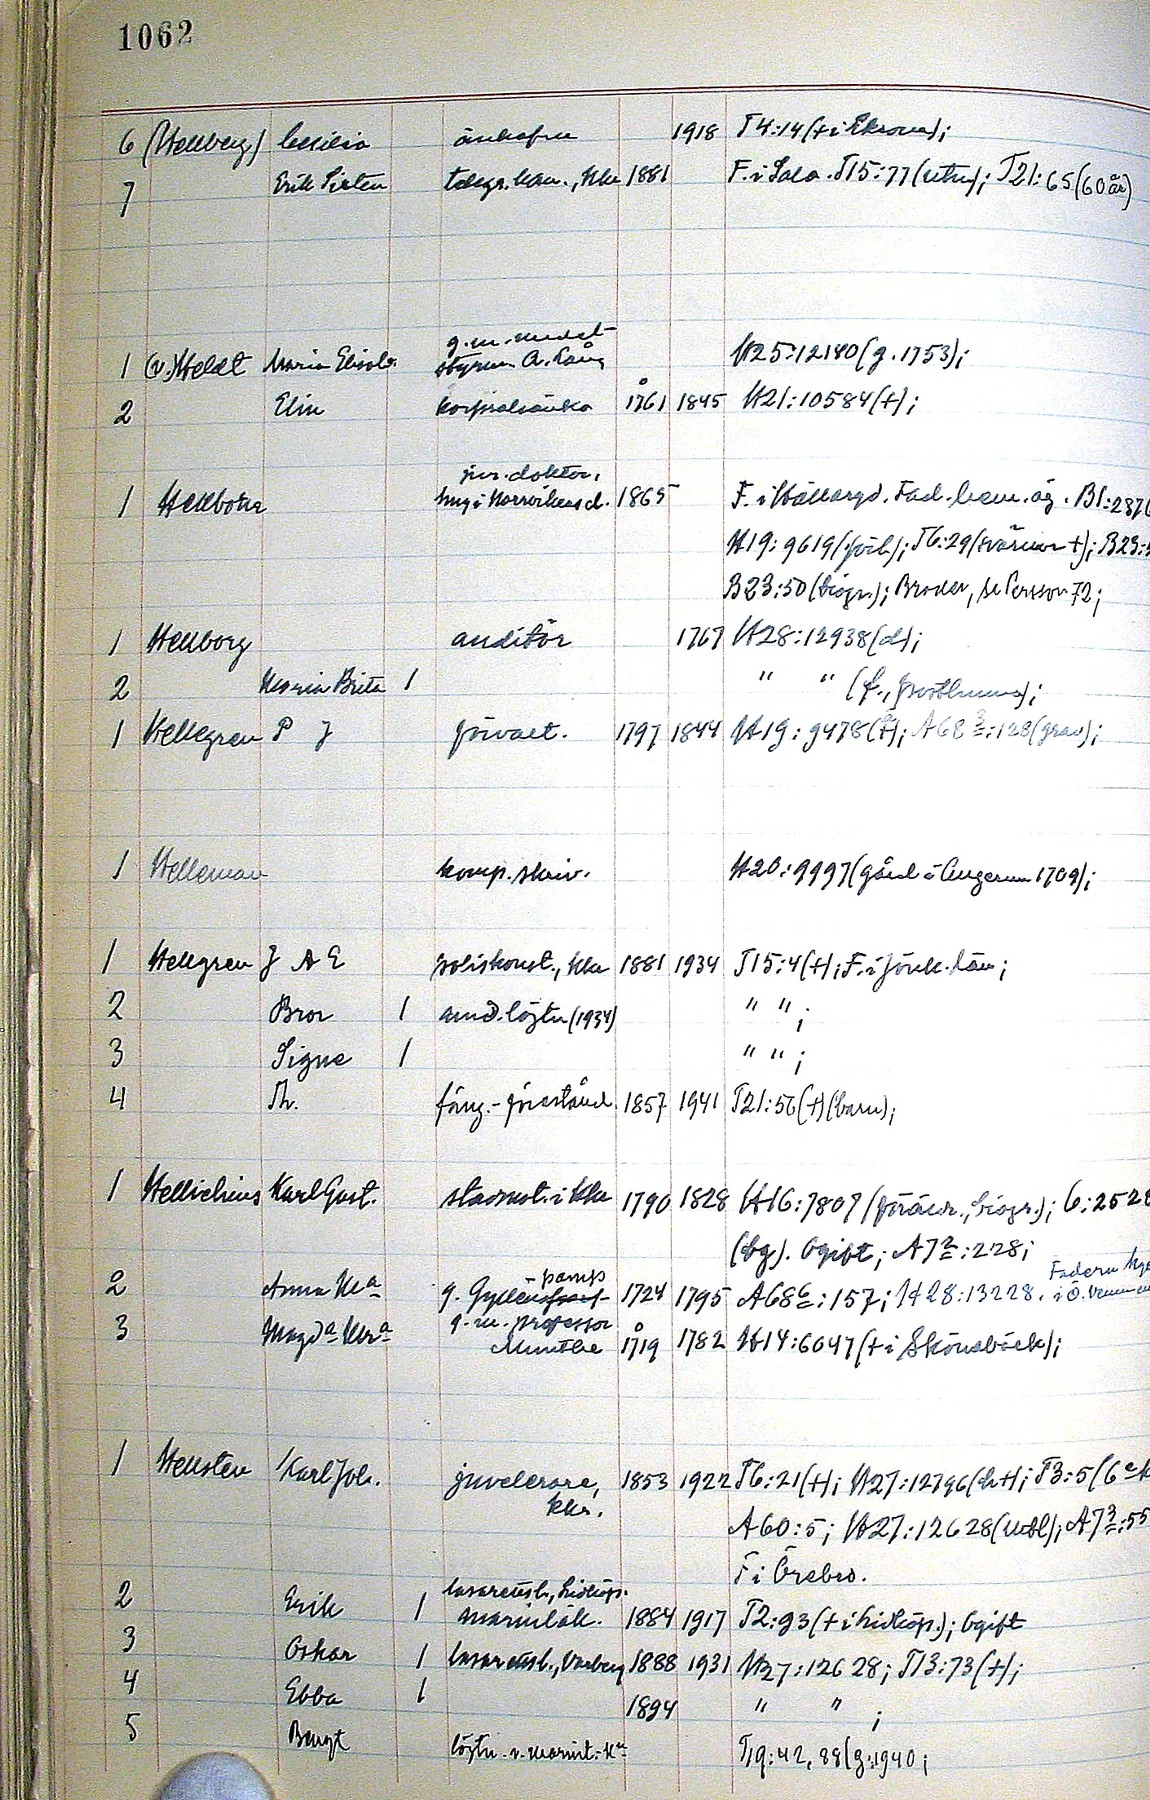 1062
6 (Hellberg) Cecilia änkefru 1918 T4:14(+i Ekerum);
7 Erik Sixten telegr.kom., Kkr 1881 F. i Sala. T15:77(utn); T21:65(60 år)
g.m. underst-
1 (v.) Heldt Maria Elisab. styrm. A. Lång H25:12140(g.1753);
2 Elin korpralsänka å 1761 1845 H21:10584(+);
jur. doktor,
1 Hellbohr 1865 F. i Hällaryd. Fad. hem. äg. B1:
H19:9619(förl); T6:29(svärmor +);
B23:50(biogr.); Broder, se Persson 72;
1 Hellborg auditör 1767 H28:12938(d);
2 Maria Brita 1 " "
1 Hellegren P J förvalt. 1797 1844 H19:9478(+); A68 3:128(grav);
1 Helleman komp. skriv. H20:9997(gård i Augerum 1709);
1 Hellgren J A E poliskonst., Kkr 1881 1934 T15:4(+); F. i Jönk. län;
2 Bror 1 und. löjtn (1934) " " ;
3 Signe 1 " " ;
4 Th. fäng.-förestånd. 1857 1941 T21:56(+)(barn);
1 Hellichius Karl Gust. stadsnot. i Kkr 1790 1828 H16:7807 biogr.); 6:2528
(bg). Ogift; A7 2:228;
pamp
2 Anna Ma g. 1724 1795 A68 6:157; H28:13228. Fadern
g.m. professor
3 Magda Mra Munthe å 1719 1782 H14:6047(+ i Skönabäck);
1 Hellsten Karl Joh. juvelerare, 1853 1922 T6:21(+); H27:12796(h+); T3:5(
Kkr. A60:5; H27:12628(utbl); A7 3:55
F i Örebro.
lasarettsl., Lidköp.
2 Erik 1 marinläk. 1884 1917 T2:93(+ i Lidköp.); Ogift
3 Oskar 1 lasarettsl., Varberg 1888 1931 H27:12628; T13:73(+);
4 Ebba 1 1894 " " ;
5 Bengt löjtn. v. T19:42, 88(g.1940;